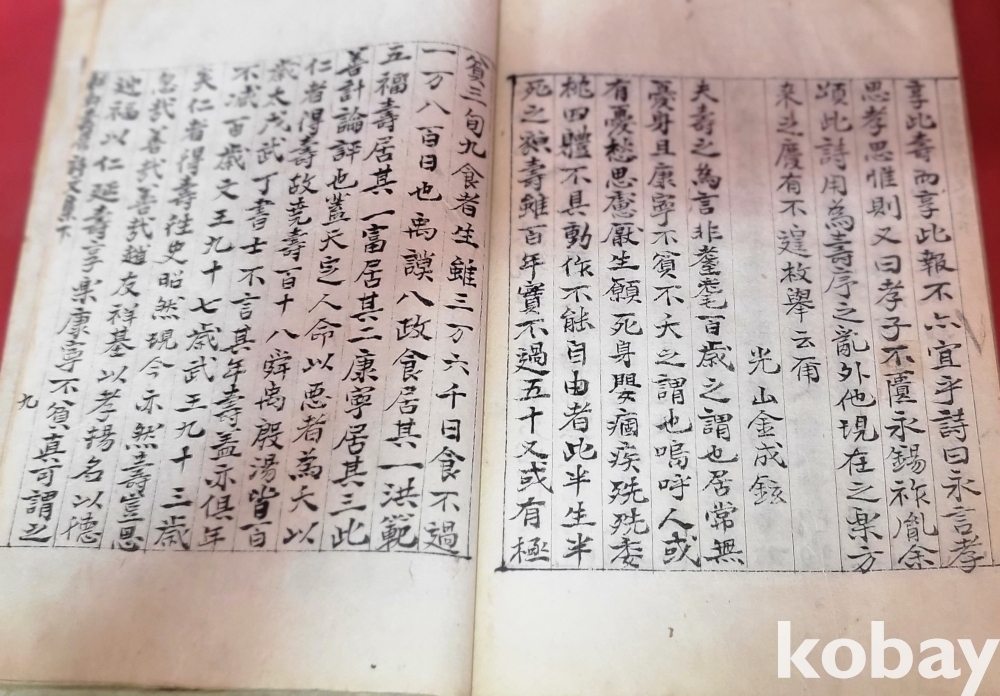 享此壽而享此報不亦宜乎詩曰永言孝
思孝思惟則又曰孝子不匱永錫祚胤余
頌此詩用爲壽序之亂外他現在之樂方
來之慶有不遑枚擧云甭
光山金成鉉
夫壽之爲言非耋耄百歲之謂也居常無
憂身且康寧不貧不夭之謂也嗚呼人或
有憂愁思慮厭生願死身嬰痼疾兟兟委
桃四體不具動作不能自由者此半生半
死之類壽雖百年實不過五十又或有極
貧三旬九食者生雖三万六千日食不過
一万八百日也禹謨八政食居其一洪範
五福壽居其一富居其二康寧居其三此
善計論評也蓋天定人命以惡者爲夭以
仁者得壽故堯壽百十八舜禹殷湯皆百
歲太戊武丁書士不言其年壽盖亦俱年
不减百歲文王九十七歲武王九十三歲
矣仁者得壽往史昭然現今亦然壽豈思
忽哉善哉善哉趙友祥基以孝揚名以德
迓福以仁延壽享樂康寧不貧眞可謂之
壽 詩文集下
九
kobay